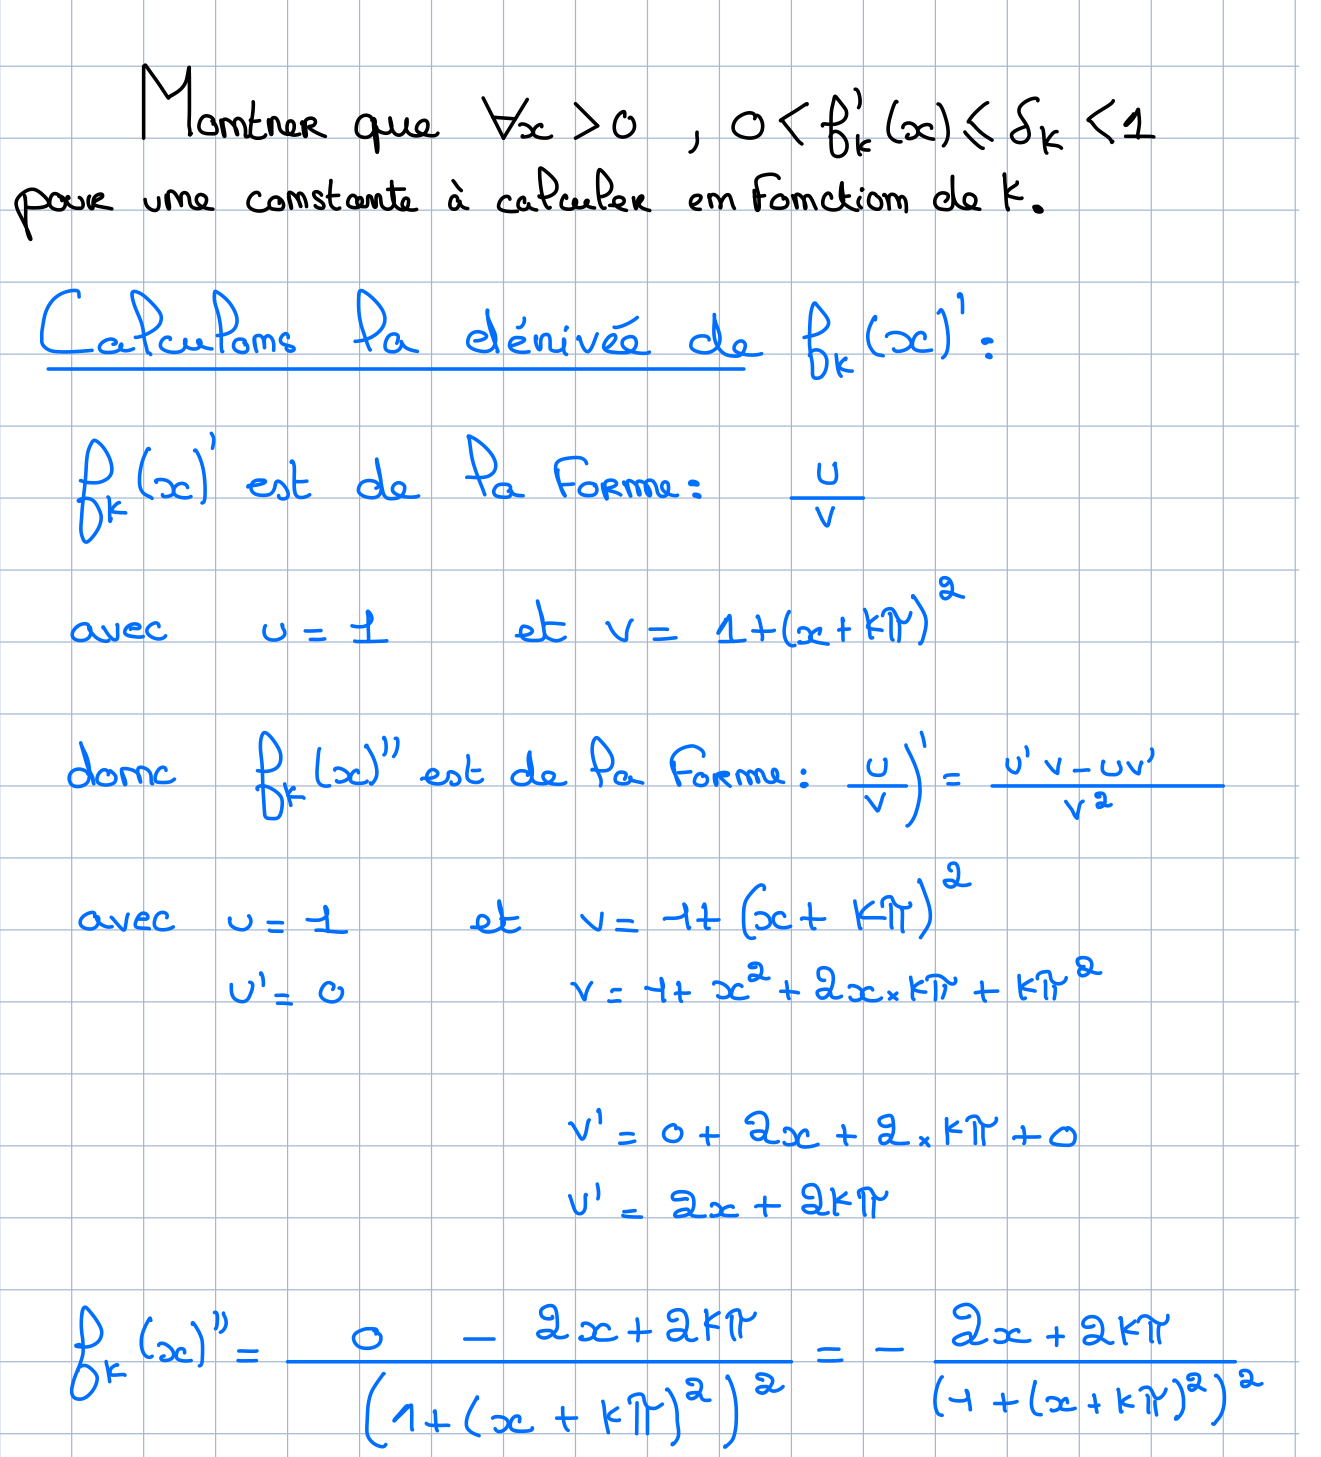 Montrer que ∀x > 0 , 0 < f'_k (x) ⩽ δ_k < 1
pour une constante à calculer en fonction de k.
Calculons la dérivée de f_k (x)' :
f_k (x)' est de la forme : u/v
avec u = 1 et v = 1+(x+kπ)²
donc f_k (x)'' est de la forme : u/v)' = (u'v - uv')/v²
avec u = 1 et v = 1+ (x + kπ)²
u' = 0 v = 1+ x² + 2x × kπ + kπ²
v' = 0 + 2x + 2 × kπ + 0
v' = 2x + 2kπ
f_k (x)'' = (0 - 2x + 2kπ)/(1+(x + kπ)²)² = - (2x + 2kπ)/(1 + (x + kπ)²)²